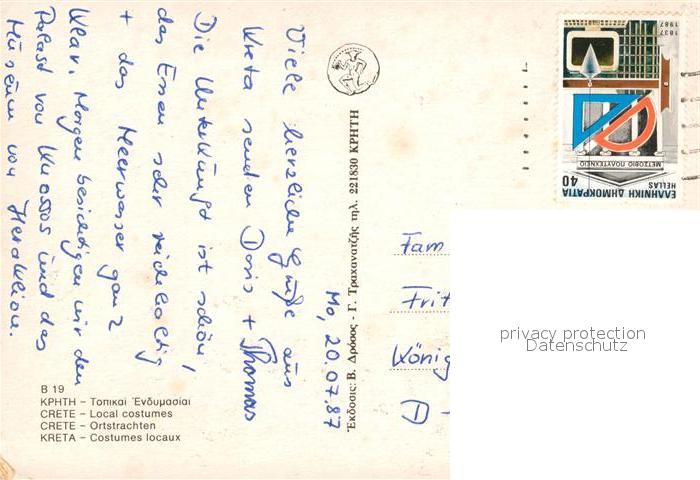 Mo, 20.07.87
Viele herzliche Grüße aus
Kreta senden Doris + Thomas
Die Unterkünft ist schön,
das Essen sehr reichhaltig
+ das Meerwasser ganz
klar. Morgen besichtigen wir den
Palast von Knossos und das
Museum von Heraklion.
B 19
ΚΡΗΤΗ – Τοπικαί Ἐνδυμασίαι
CRETE – Local costumes
CRETE – Ortstrachten
KRETA – Costumes locaux
Ἔκδοσις: Β. Δρόσος - Γ. Τραχανατζῆς τηλ. 221830 ΚΡΗΤΗ
Fam
Frit
König
D -
1837
1987
ΜΕΤΣΟΒΙΟ ΠΟΛΥΤΕΧΝΕΙΟ
40
ΕΛΛΗΝΙΚΗ ΔΗΜΟΚΡΑΤΙΑ
HELLAS
privacy protection
Datenschutz